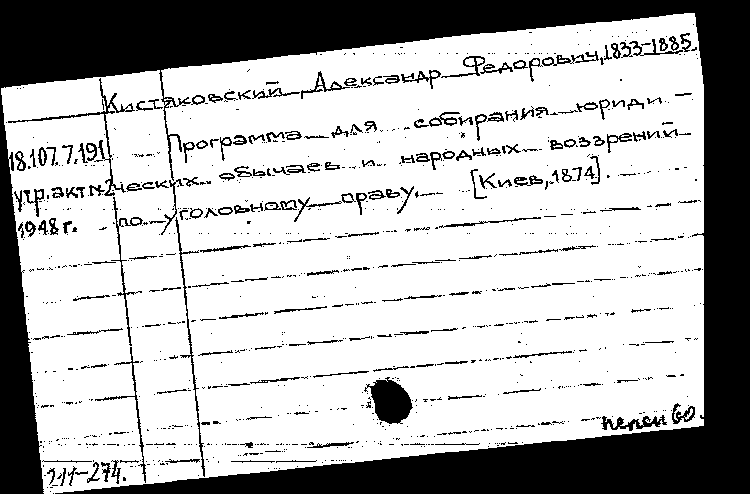 Кистяковский, Александр Федорович, 1833-1885.
18.107.7.191 Программа для собирания юриди-
утр. акт №2 ческих обычаев и народных воззрений
1948 г. по уголовному праву. [Киев, 1874].
60.
211-274.